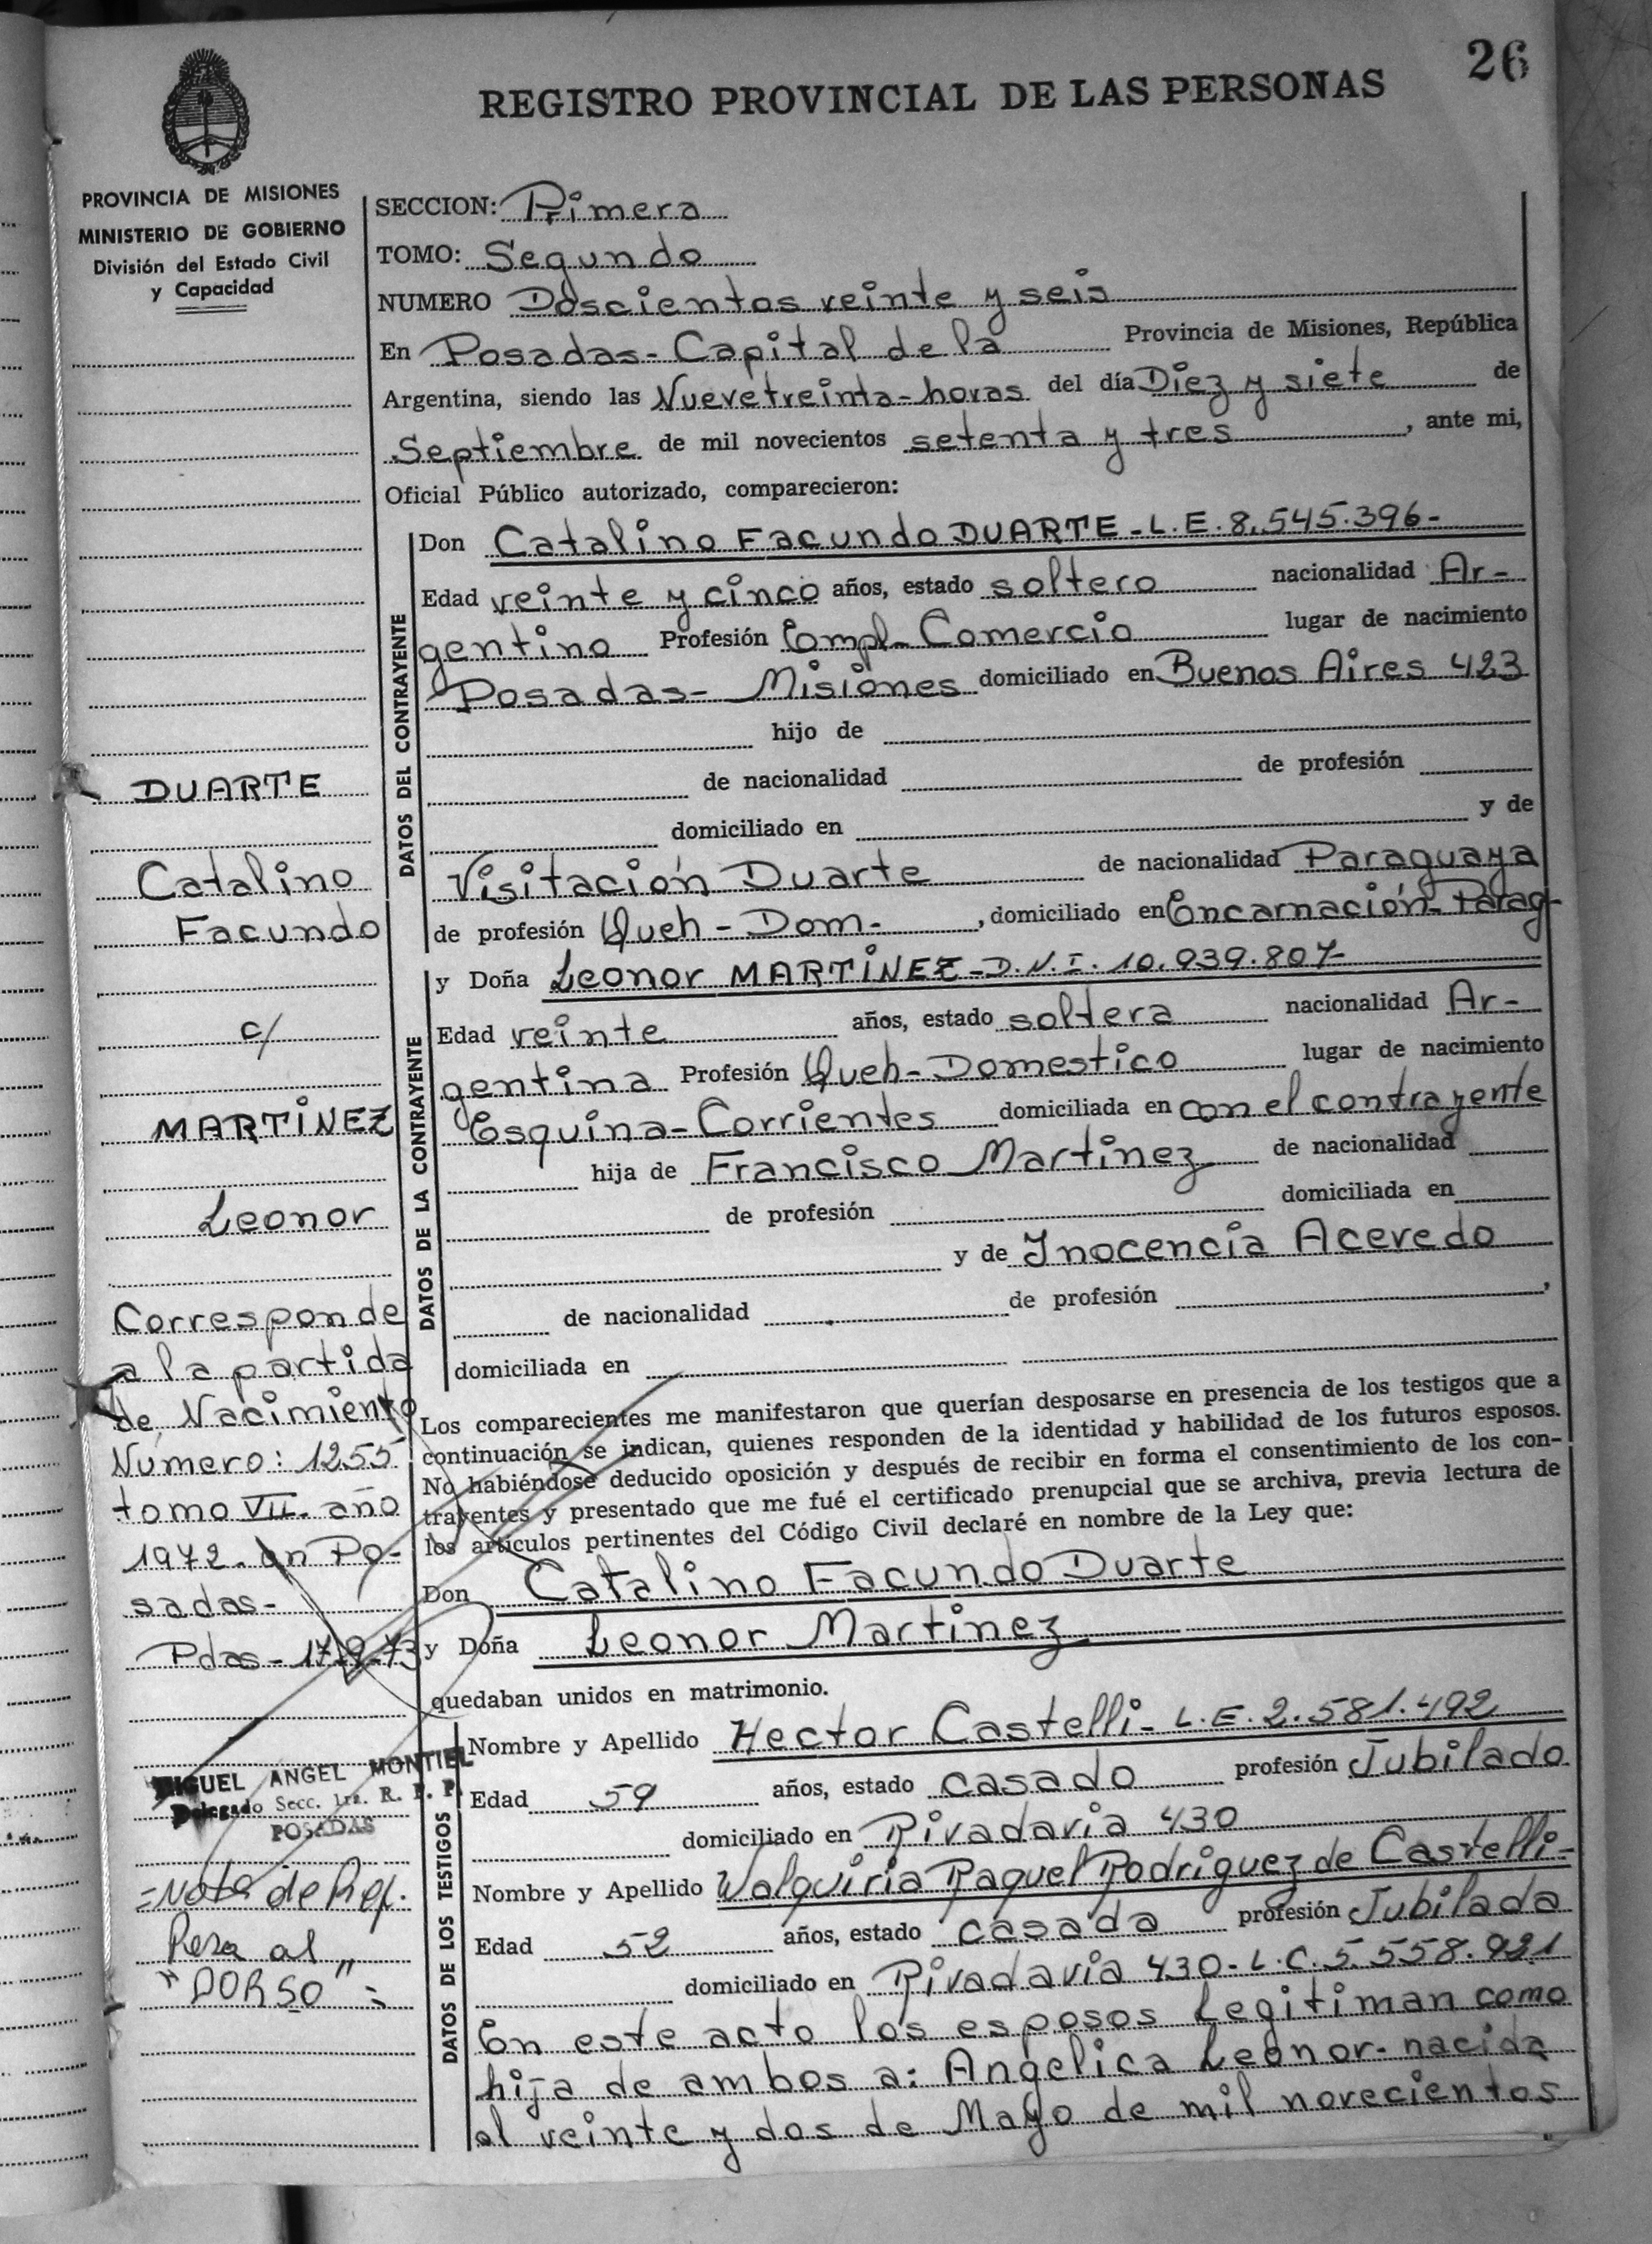 26
REGISTRO PROVINCIAL DE LAS PERSONAS
PROVINCIA DE MISIONES
MINISTERIO DE GOBIERNO
División del Estado Civil
y Capacidad
SECCION: Primera
TOMO: Segundo
NUMERO Doscientos veinte y seis
En Posadas - Capital de la Provincia de Misiones, República
Argentina, siendo las Nueve treinta - horas del día Diez y siete de
Septiembre de mil novecientos setenta y tres, ante mi,
Oficial Público autorizado, comparecieron:
DATOS DEL CONTRAYENTE
Don Catalino Facundo DUARTE - L.E. 8.545.396-
Edad veinte y cinco años, estado soltero nacionalidad Ar-
gentino Profesión Empl- Comercio lugar de nacimiento
Posadas- Misiones domiciliado en Buenos Aires 423
hijo de
de nacionalidad de profesión
domiciliado en y de
Visitación Duarte de nacionalidad Paraguaya
de profesión Queh - Dom- , domiciliado en Encarnación- Parag-
DATOS DE LA CONTRAYENTE
y Doña Leonor MARTINEZ - D.N.I. 10.939.807-
Edad veinte años, estado soltera nacionalidad Ar-
gentina Profesión Queh- Domestico lugar de nacimiento
Esquina - Corrientes domiciliada en con el contrayente
hija de Francisco Martinez de nacionalidad
de profesión domiciliada en
y de Inocencia Acevedo
de nacionalidad de profesión ,
domiciliada en
Los comparecientes me manifestaron que querían desposarse en presencia de los testigos que a
continuación se indican, quienes responden de la identidad y habilidad de los futuros esposos.
No habiéndose deducido oposición y después de recibir en forma el consentimiento de los con-
trayentes y presentado que me fué el certificado prenupcial que se archiva, previa lectura de
los artículos pertinentes del Código Civil declaré en nombre de la Ley que:
Don Catalino Facundo Duarte
y Doña Leonor Martinez
quedaban unidos en matrimonio.
DATOS DE LOS TESTIGOS
Nombre y Apellido Hector Castelli - L.E. 2.581.492
Edad 59 años, estado casado profesión Jubilado
domiciliado en Rivadavia 430
Nombre y Apellido Walquiria Raquel Rodriguez de Castelli-
Edad 52 años, estado casada profesión Jubilada
domiciliado en Rivadavia 430 - L.C. 5.558.921
En este acto los esposos Legitiman como
hija de ambos a: Angelica Leonor - nacida
el veinte y dos de Mayo de mil novecientos
DUARTE
Catalino
Facundo
c/
MARTINEZ
Leonor
Corresponde
a la partida
de Nacimiento
Numero: 1255
tomo VII. año
1972. en Po-
sadas-
Pdas - 17-9-73
MIGUEL ANGEL MONTIEL
Delegado Secc. 1ra. R. P. P.
POSADAS
=Nota de Ref.
Pasa al
"DORSO"=